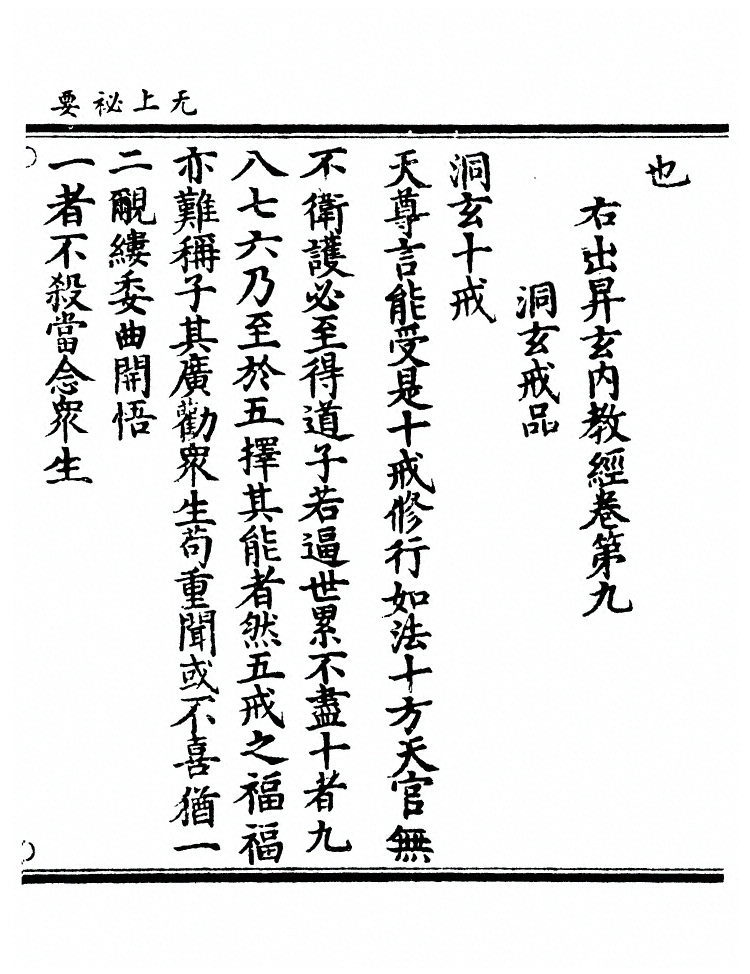 无上祕要
也
右出昇玄内教經卷第九
洞玄戒品
洞玄十戒
天尊言能受是十戒修行如法十方天官無
不衛護必至得道子若逼世累不盡十者九
八七六乃至於五擇其能者然五戒之福福
亦難稱子其廣勸衆生苟重聞或不喜猶一
二覼縷委曲開悟
一者不殺當念衆生